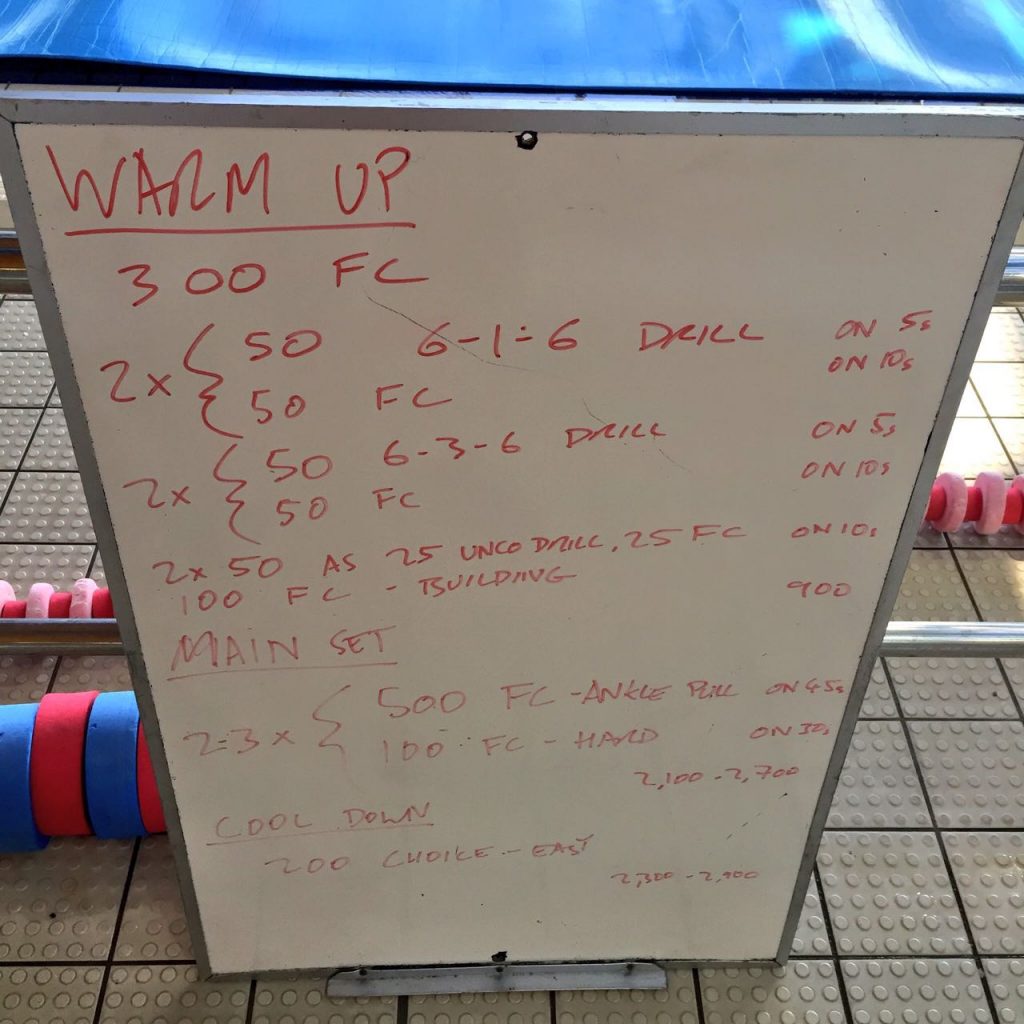 WARM UP
300 FC
2x { 50 6-1-6 DRILL ON 5s
50 FC ON 10s
2x { 50 6-3-6 DRILL ON 5s
50 FC ON 10s
2x 50 AS 25 UNCO DRILL, 25 FC ON 10s
100 FC - BUILDING 900
MAIN SET
2-3 x { 500 FC - ANKLE PULL ON 45s
100 FC - HARD ON 30s
2,100 - 2,700
COOL DOWN
200 CHOICE - EASY
2,300 - 2,900